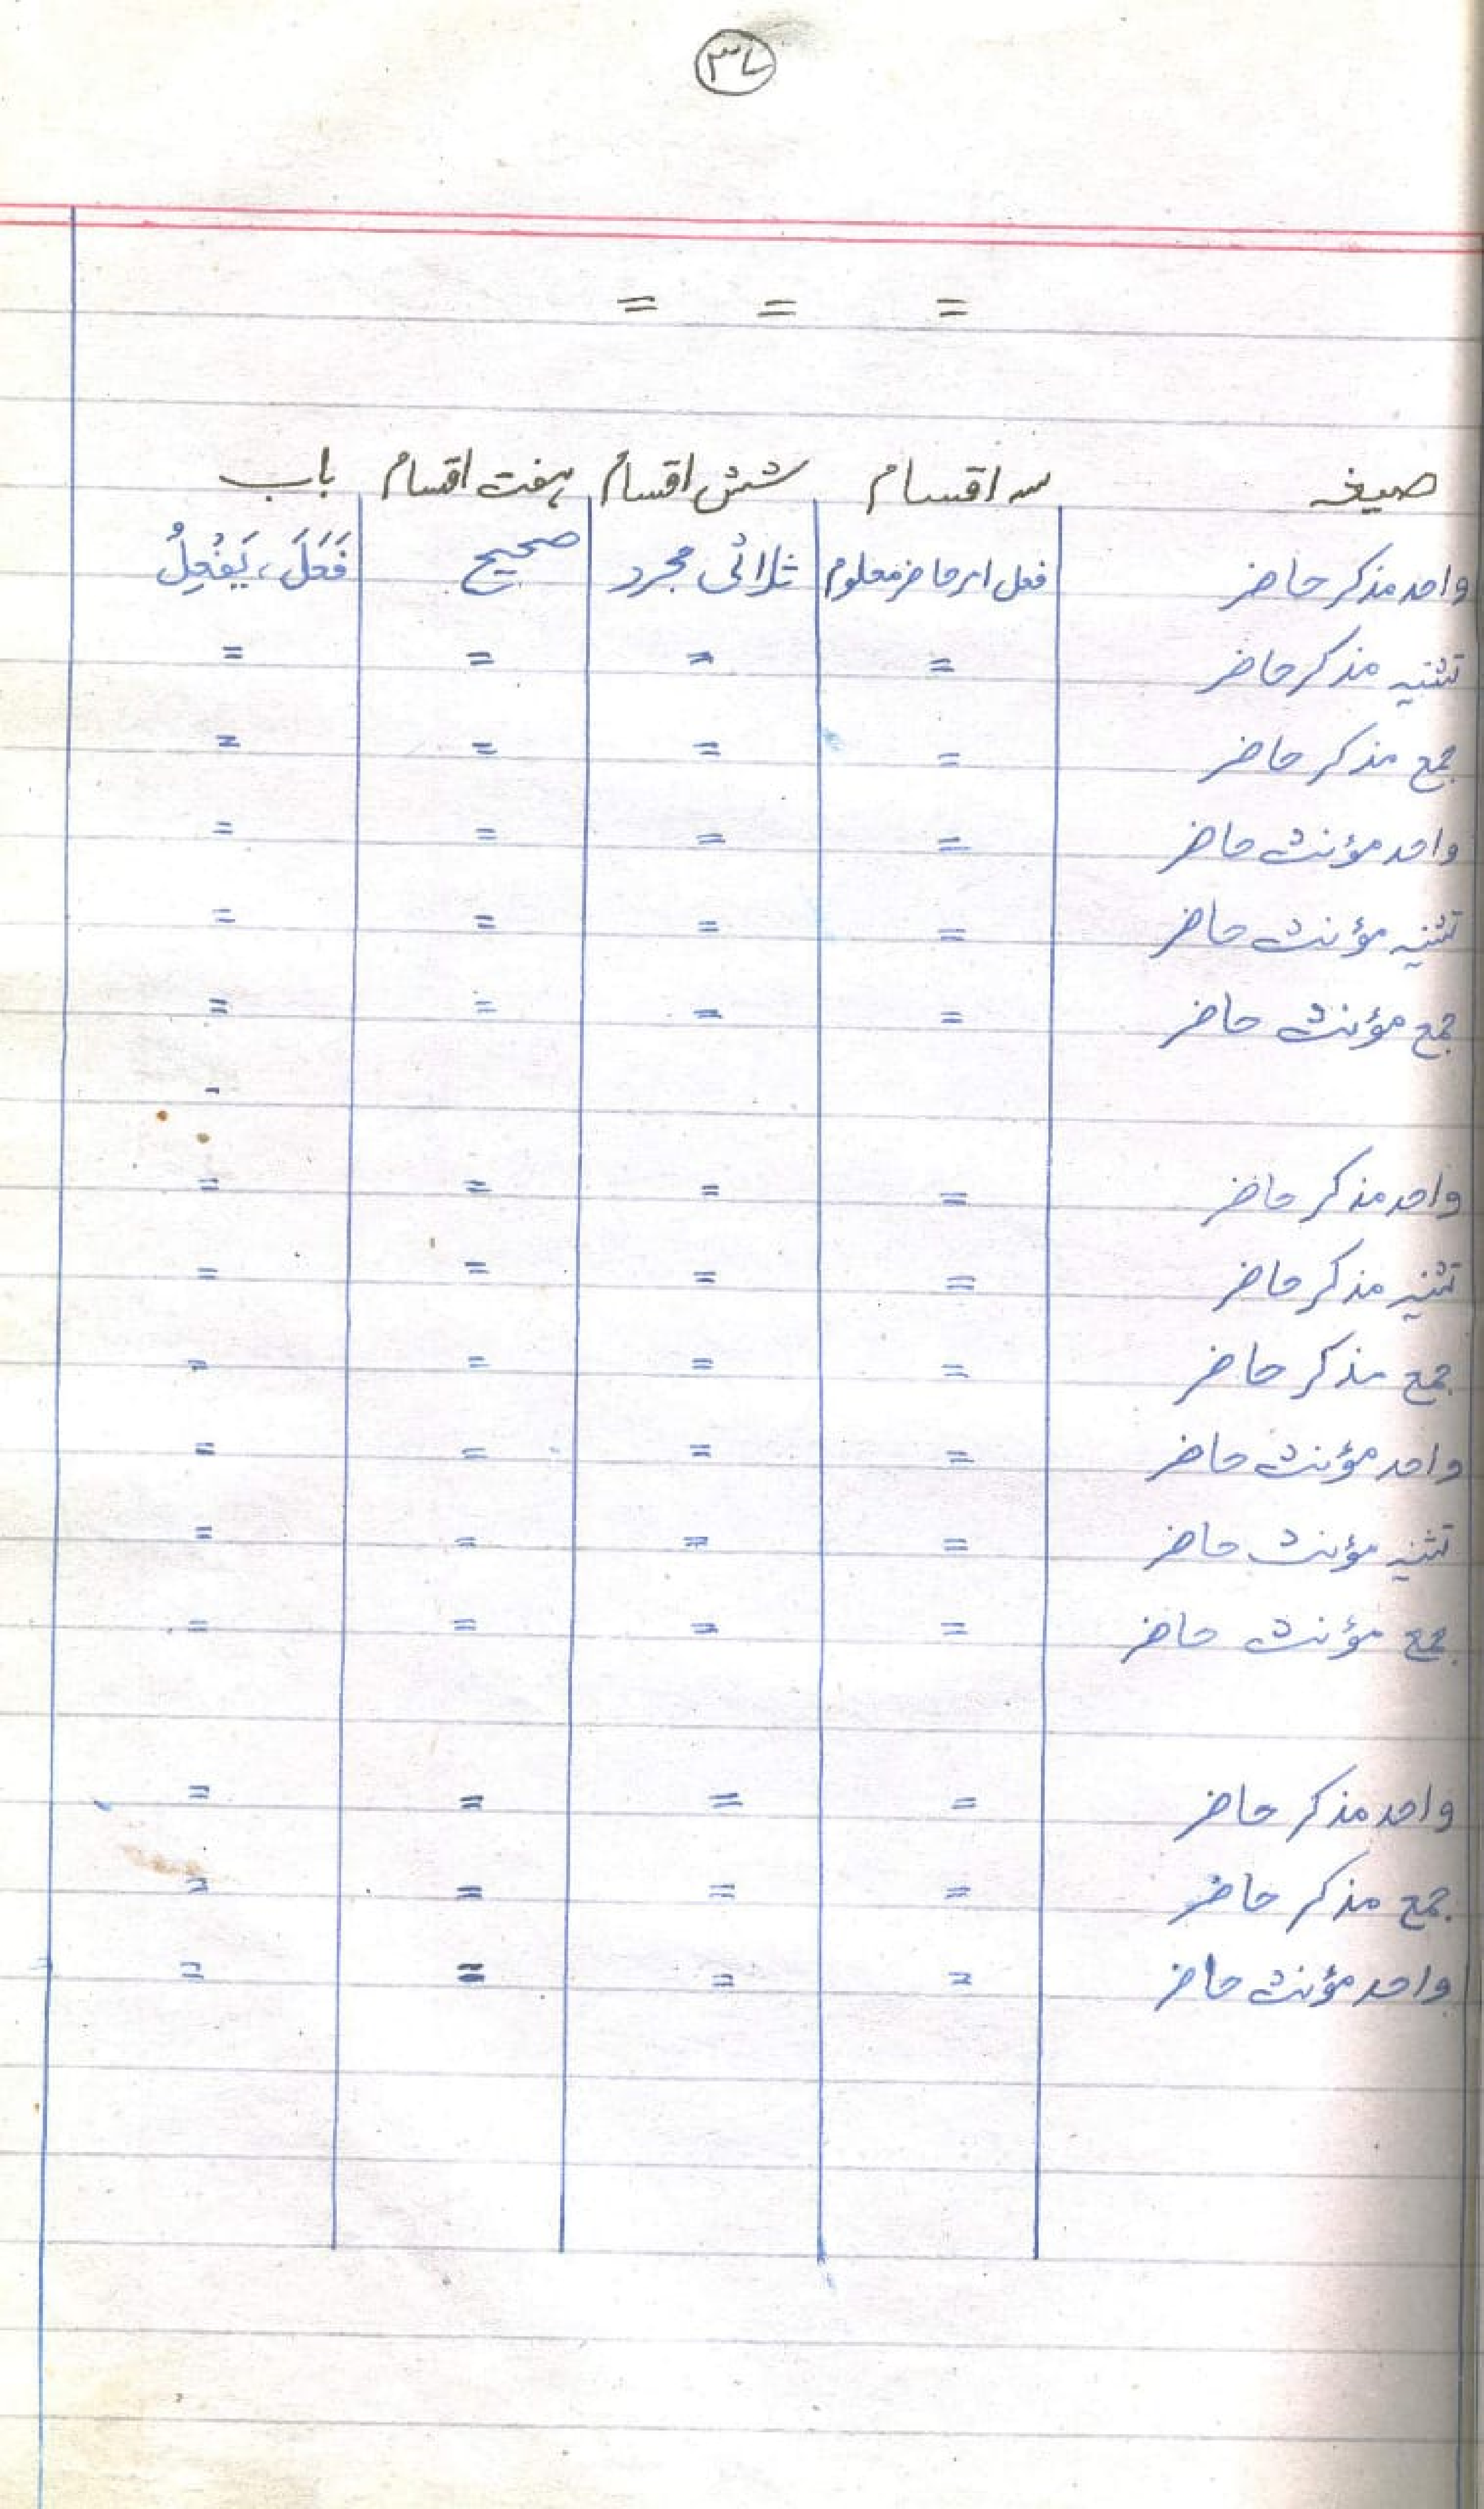 ۳۷
= = =
صیغہ سہ اقسام شش اقسام ہفت اقسام باب
واحد مذکر حاضر فعل امر حاضر معلوم ثلاثی مجرد صحیح فَعَلَ، يَفْعِلُ
تثنیہ مذکر حاضر = = = =
جمع مذکر حاضر = = = =
واحد مؤنث حاضر = = = =
تثنیہ مؤنث حاضر = = = =
جمع مؤنث حاضر = = = =
واحد مذکر حاضر = = = =
تثنیہ مذکر حاضر = = = =
جمع مذکر حاضر = = = =
واحد مؤنث حاضر = = = =
تثنیہ مؤنث حاضر = = = =
جمع مؤنث حاضر = = = =
واحد مذکر حاضر = = = =
جمع مذکر حاضر = = = =
واحد مؤنث حاضر = = = =